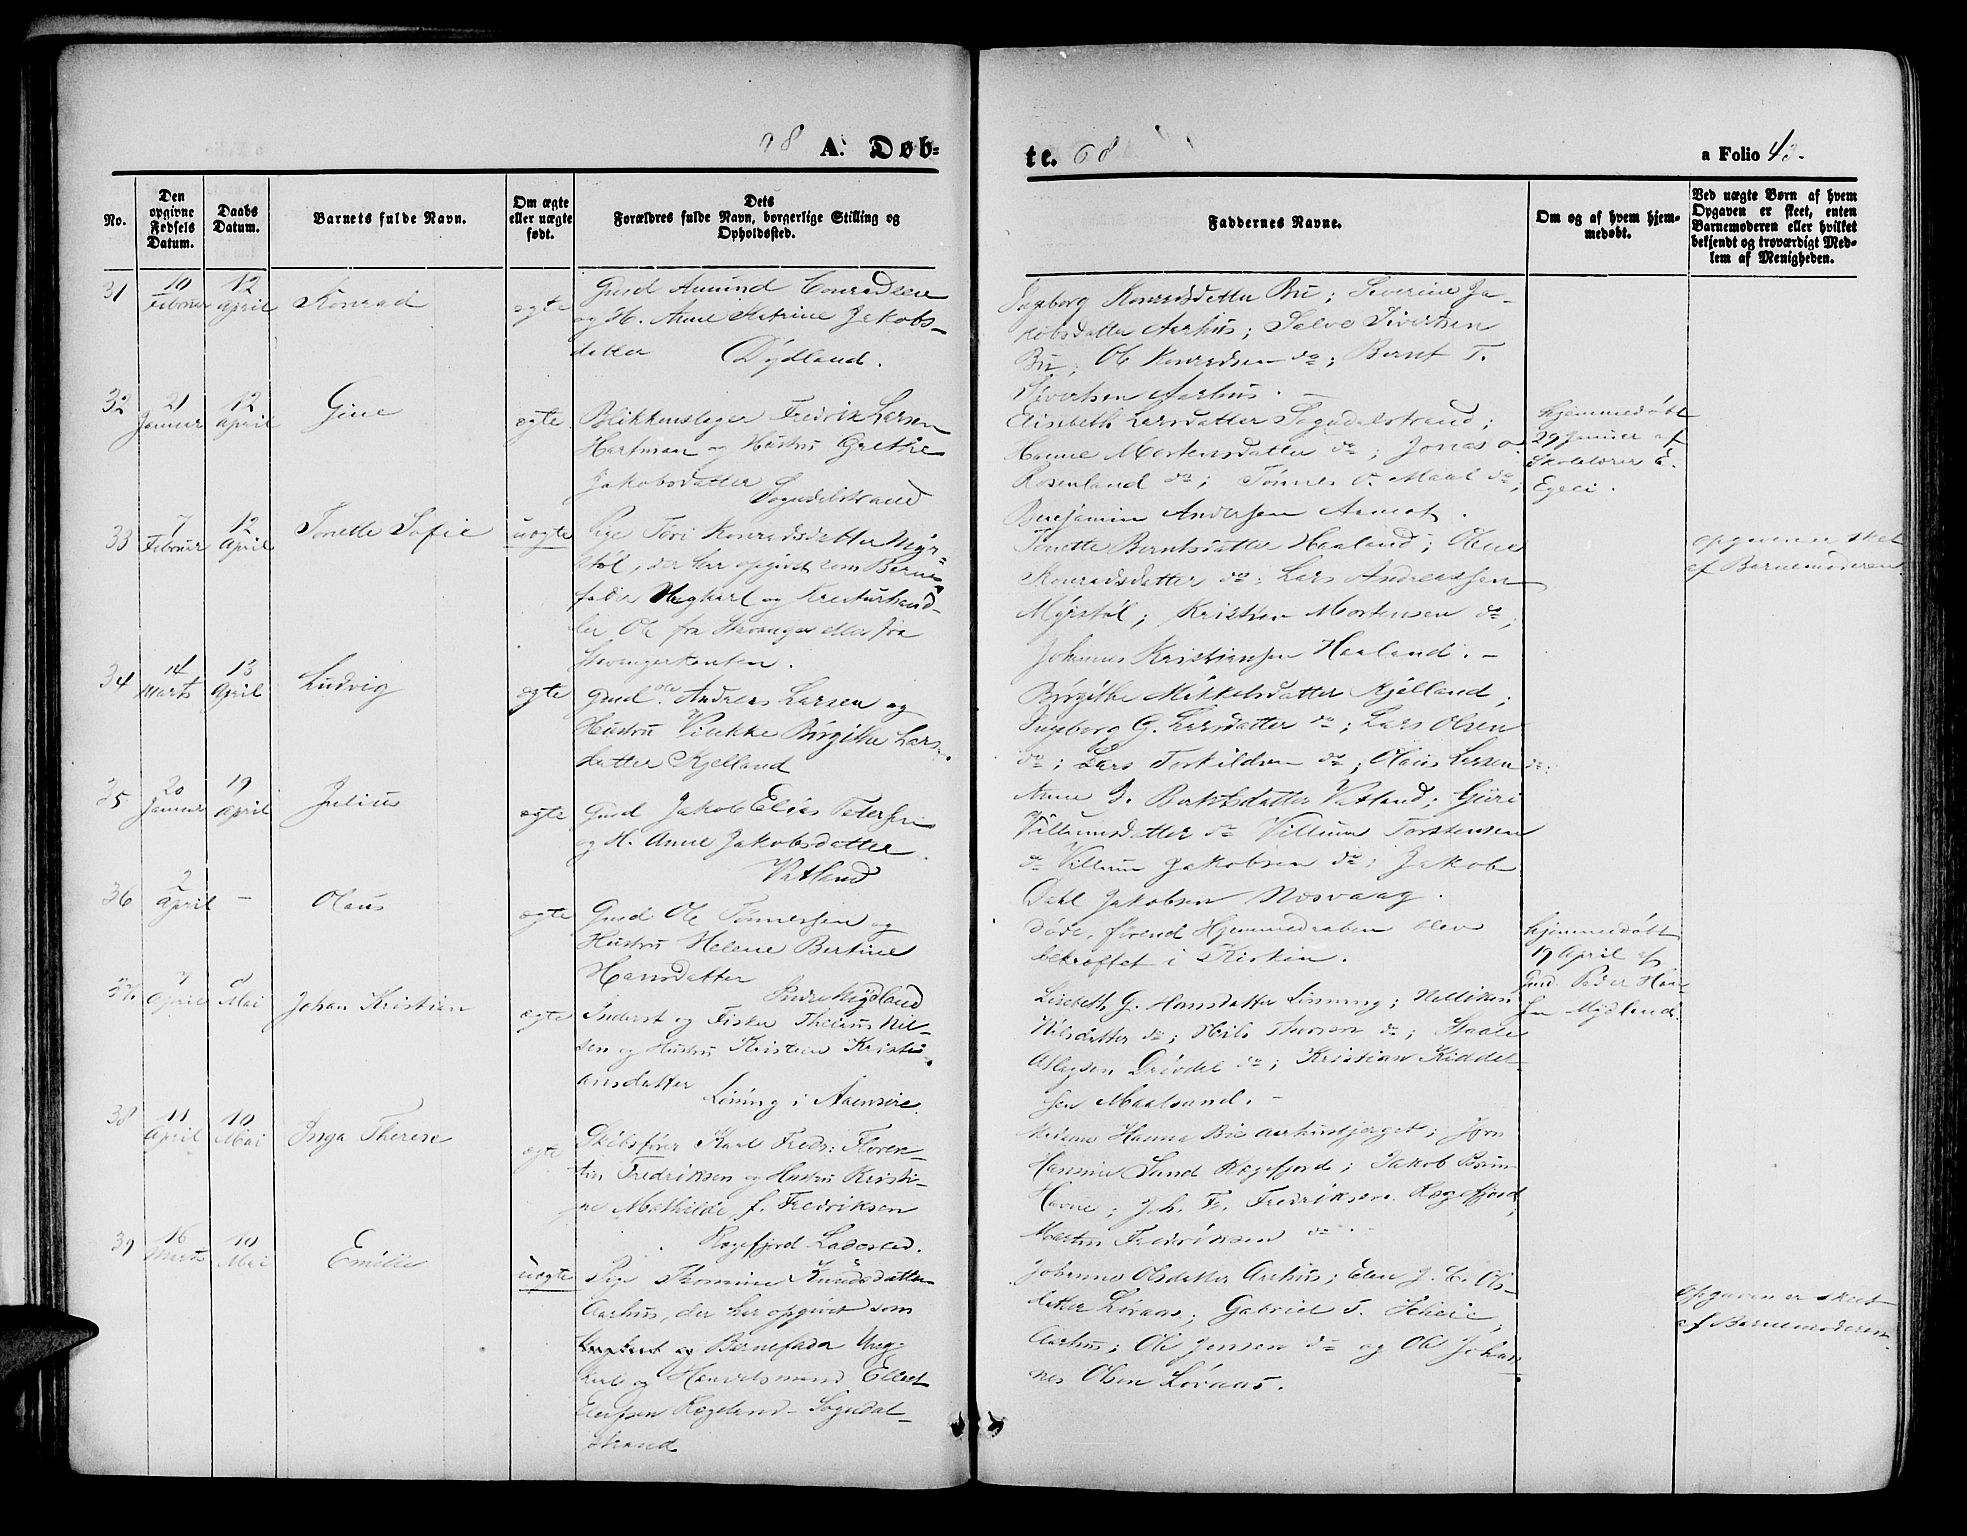 A. Døb=
te. 68
a Folio 43.
No.
Den opgivne Fødsels Datum.
Daabs Datum.
Barnets fulde Navn.
Om ægte eller uægte født.
Dets Forældres fulde Navn, borgerlige Stilling og Opholdssted.
Faddernes Navne.
Om og af hvem hjemmedøbt.
Ved uægte Børn af hvem
Opgaven er skeet, enten
Barnemoderen eller hvilket
bekjendt og troværdigt Med-
lem af Menigheden.
31
10 Februer
12 April
Konrad
ægte
Gmd Amund Conradsen
og H. Anne Katrine Jakobs-
datter Dydland.
Ingeborg Konradsdatter Bu; Severine Ja-
kobsdatter Aarhus; Salve Sivertsen
Bu; Ole Konradsen do; Bernt T.
Sivertsen Aarhus.
32
21 Januer
12 April
Gine
ægte
Blikkenslager Fredrik Larsen
Hartman og Hustru Grethe
Jakobsdatter
Sogndalstrand
Elisabeth Larsdatter Sogndalstrand;
Hanne Mortensdatter do; Jonas O.
Rosenland do; Tønnes O. Maal do;
Benjamin Andersen Aamot.
hjemmedøbt
29 Januer af
Skolelærer E.
Egeli.
33
7 Februer
12 April
Tonette Sofie
uægte
Pige Tori Konradsdatter Myr-
støl, der har opgivet som Barne-
fader Ungkarl og Kreaturhand-
ler Ole fra Stavanger eller fra
Stavangerkanten.
Tonette Berntsdatter Haaland; Oline
Konradsdatter do; Lars Andreassen
Myrstøl; Kristian Mortensen do;
Johannes Kristiansen Haaland. -
opgaven er skeet
af Barnemoderen
34
14 Marts
13 April
Ludvig
ægte
Gmd. Ole Andreas Larsen og
Hustru Vibekke Birgithe Lars-
datter Kjelland
Birgithe Mikkelsdatter Kjelland;
Ingeborg G. Larsdatter do; Lars Olsen
do; Lars Torkildsen do; Olaus Larsen do:
35
20 Januer
19 April
Julius
ægte
Gmd Jakob Elias Petersen
og H. Anne Jakobsdatter
Vatland
Anne J. Bertelsdatter Vatland; Guri
Villumsdatter do Villum Torstensen
do Villum Jakobsen do; Jakob
Dahl Jakobsen Nesvaag.
36
2 April
-
Olaus
ægte
Gmd Ole Tønnessen og
Hustru Helene Bertine
Hansdatter
Indre Mydland
døde, førend Hjemmedaaben blev
bekræftet i Kirken.
hjemmedøbt
19 April af
Gmd. Peder Han-
sen Mydland.
37.
7 April
8 Mai
Johan Kristian
ægte
Inderst og Fisker Theleus Nil-
sen og Hustru Kirstein Kristi-
ansdatter
Løning i Aaensire.
Lisebeth G. Hansdatter Linning; Nelliken
Nilsdatter do; Nils Thorsen do; Staale
Atlagsen Drivdal do; Kristian Kiddel-
sen Maalsand. -
38
11 April
10 Mai
Inga Therese
ægte
Skibsfører Karl Fredr: Floren-
tin Fredriksen og Hustru Kristi-
ne Mathilde f. Fredriksen
Rægefjord Ladested.
Madame Hanna Bie Aarhusbjerget; Jfru
Hansine Sand Rægefjord; Jakob
Havne; Joh. Fr. Fredriksen Rægefjord;
Martin Fredriksen do.
39
16 Marts
10 Mai
Emilie
uægte
Pige Thomine Knudsdatter
Aarhus, der har opgivet som
Barnefader Ung-
karl og Handelsmand Ellert
Elefsen Rægeland Sogndal-
strand
Johanne Olsdatter Aarhus; Elen J. C. Ols-
datter Løvaas; Gabriel T. Scheie,
Aarhus; Ole Jensen do og Ole Johan-
nes Olsen Løvaas.
opgaven er skeet
af Barnemoderen